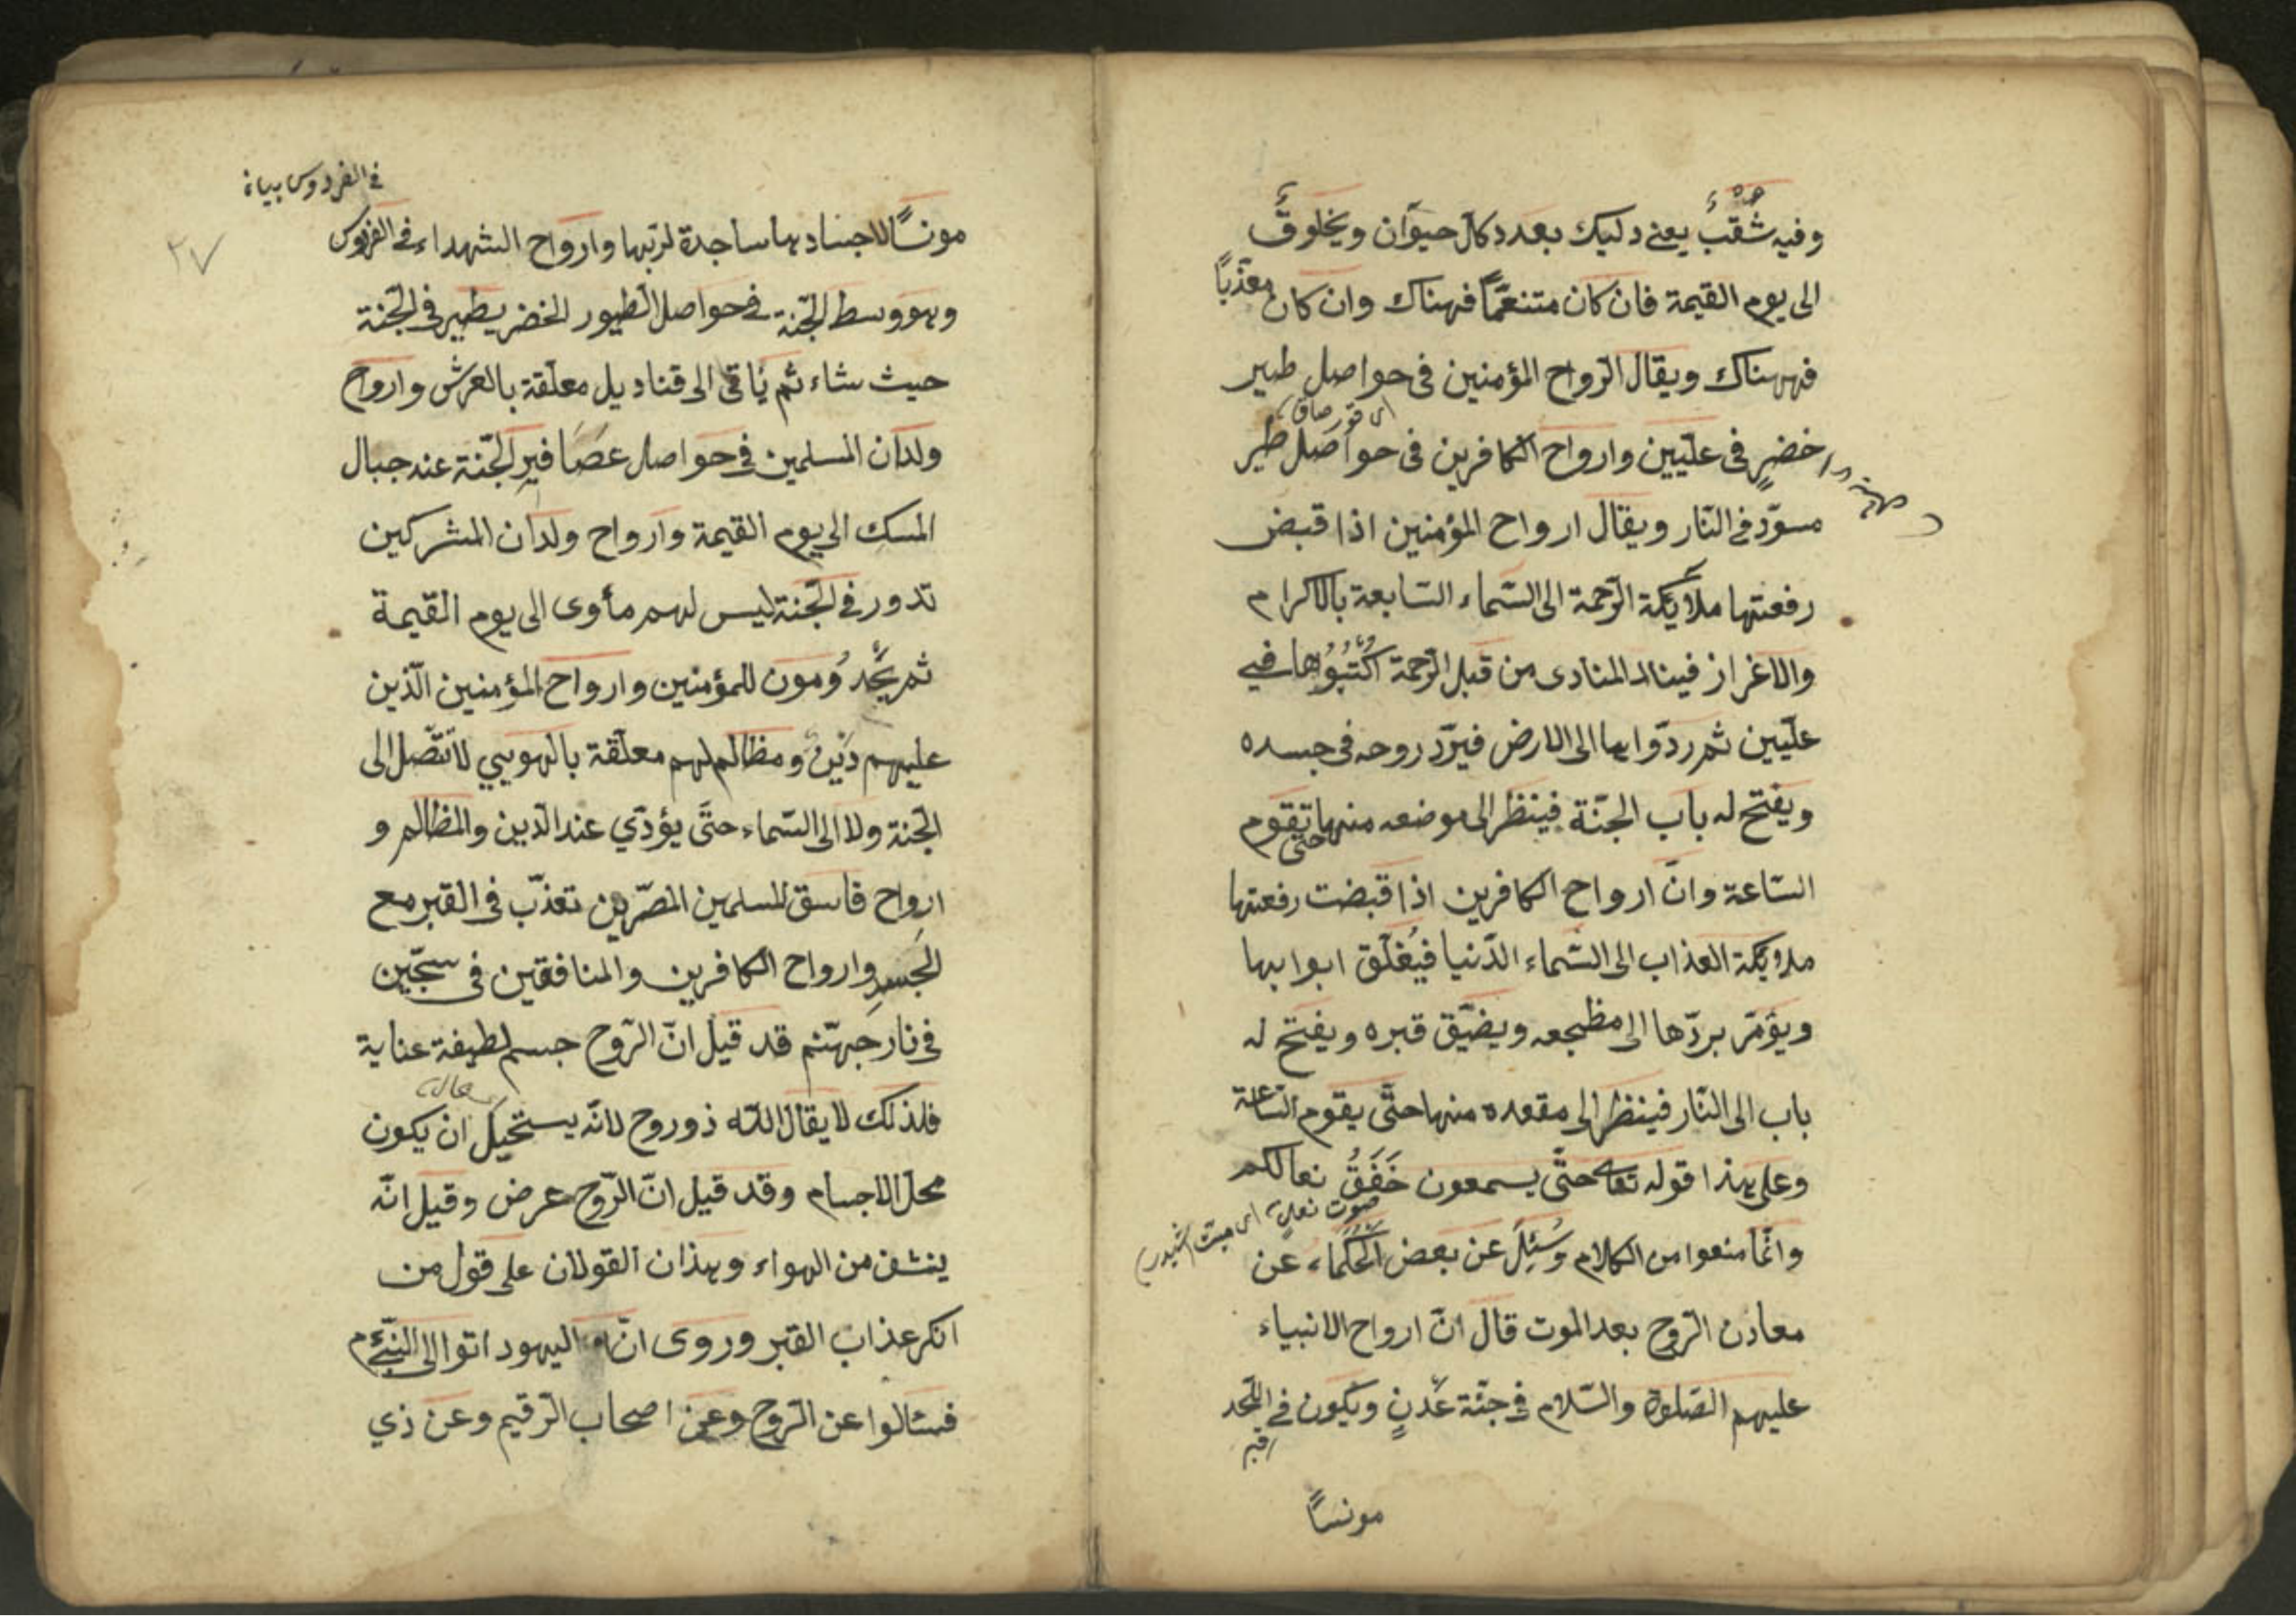 وفيه ثُقْبٌ يعنى دليك بعدد كل حيوان ومخلوق
الى يوم القيمة فان كان متنعّماً فهناك وان كان معذّباً
فههناك ويقال الرواح المؤمنين فى حواصل طير
خضرٍ فى علّيين وارواح الكافرين فى حواصل طير
مسوّد فى النّار ويقال ارواح المؤمنين اذا قبض
رفعتها ملائكة الرّحمة الى السّماء السّابعة بالاكرام
والاغراز فيناد المنادى من قبل الرّحمة اُكْتُبُوُها فى
علّيين ثم ردّوا بها الى الارض فيردّ روحه فى جسده
ويفتح له باب الجنّة فينظر الى موضعه منها حتى تقوم
السّاعة وانّ ارواح الكافرين اذا قبضت رفعتها
ملائكة العذاب الى السّماء الدّنيا فيُغلّق ابوابها
ويؤمر بردّها الى مظجعه ويضيّق قبره ويفتح له
باب الى النّار فينظر الى مقعده منها حتّى يقوم السّاعة
وعلى هذا قوله تعا حتّى يسمعون خَفَقُ نعالكم
صوت نعلين
وانّما منعوا من الكلام وَسُئِلَ عن بعض الحُكَماء عن
معادن الرّوح بعد الموت قال انّ ارواح الانبياء
عليهم الصّلوة والسّلام فى جنّة عَدْنٍ ويكون فى اللّحد
قبر
مونساً
فى الفردوس بيان
٢٧
مونساً لاجسادها ساجدة لربّها وارواح الشهداء فى الفردوس
وهو وسط الجنّة فى حواصل الطيور الخضر يطير فى الجنّة
حيث شاء ثم يأتى الى قناديل معلّقة بالعرش وارواح
ولدان المسلمين فى حواصل عصافير الجنّة عند جبال
المسك الى يوم القيمة وارواح ولدان المشركين
تدور فى الجنّة ليس لهم مأوى الى يوم القيمة
ثم يخدُومون للمؤمنين وارواح المؤمنين الّذين
عليهم دَيْنٌ ومظالم لهم معلّقة بالهويى لا تتّصل الى
الجنة ولا الى السّماء حتّى يؤدّي عند الدّين والمظالم و
ارواح فاسق المسلمين المصّرين تعذّب فى القبر مع
الجسدِ وارواح الكافرين والمنافقين فى سجّين
فى نار جهنّم قد قيل انّ الرّوح جسم لطيفة عناية
فلذلك لا يقال اللّه ذو روح لانّه يستحيل ان يكون
محل الاجسام وقد قيل انّ الرّوح عرض وقيل انّه
ينشف من الهواء وهذان القولان على قول من
انكر عذاب القبر وروى انّ اليهود اتوا الى النبّى م
فسئالوا عن الرّوح وعن اصحاب الرّقيم وعن ذي